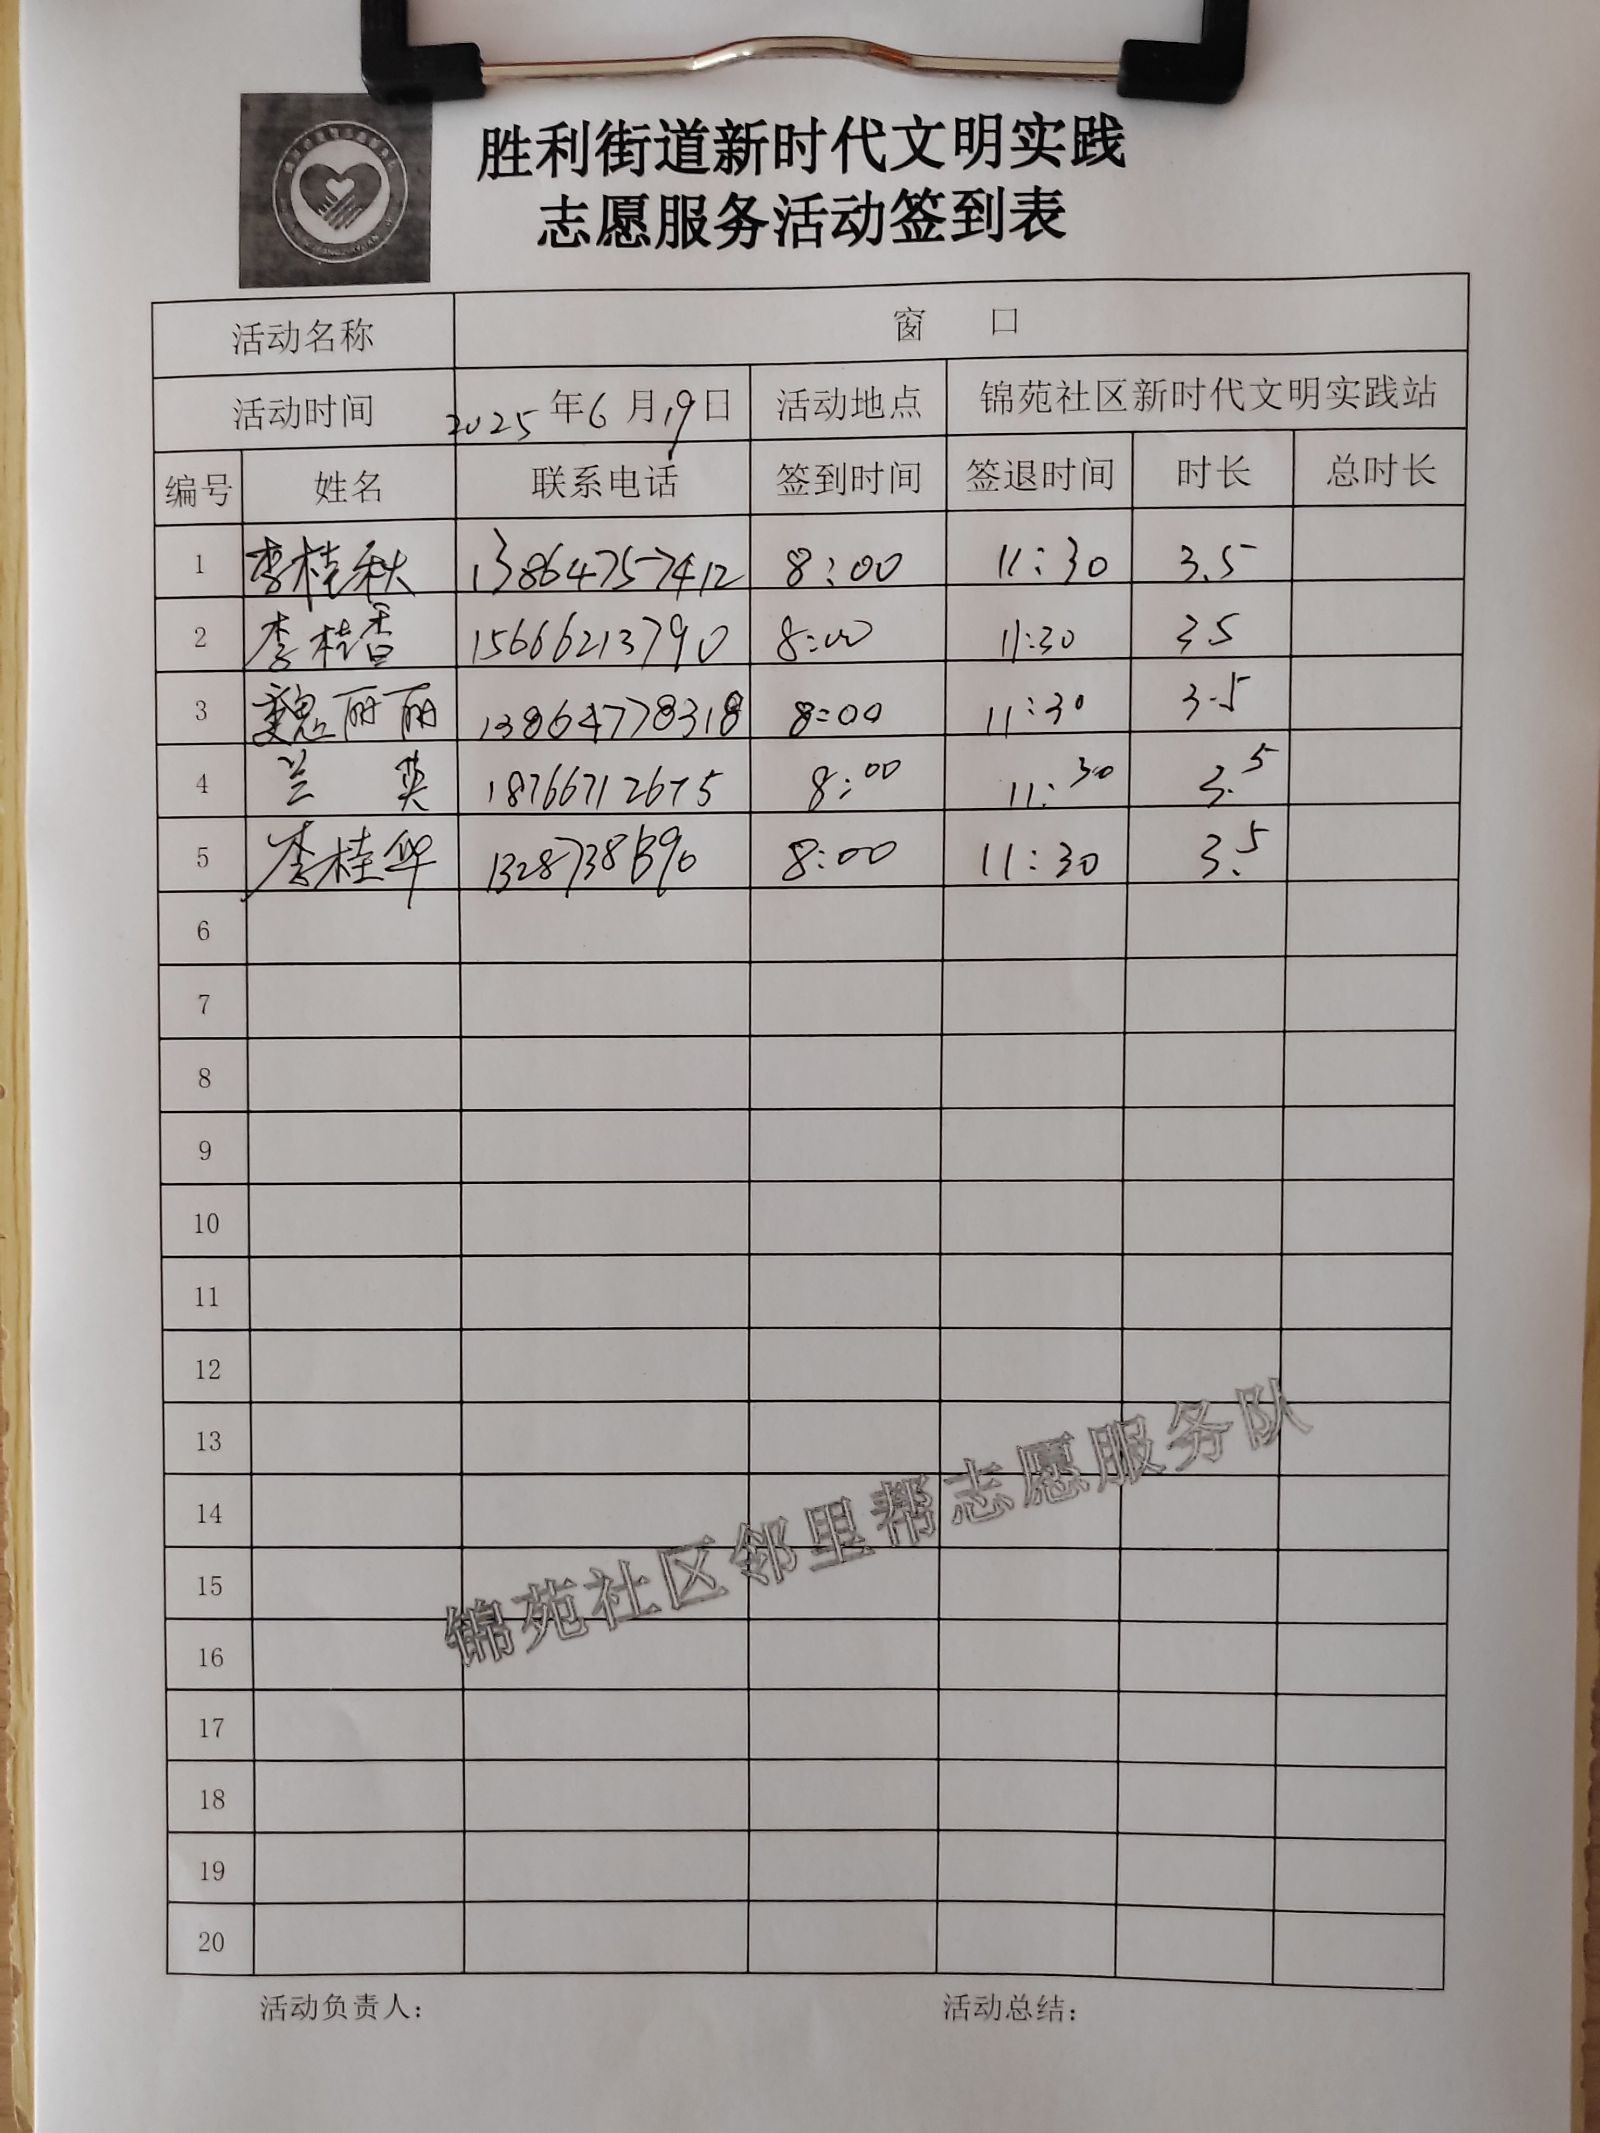 胜利街道新时代文明实践
志愿服务活动签到表
活动名称 窗 口
活动时间 2025年6月19日 活动地点 锦苑社区新时代文明实践站
编号 姓名 联系电话 签到时间 签退时间 时长 总时长
1 李桂秋 13864757412 8:00 11:30 3.5
2 李桂香 15666213790 8:00 11:30 3.5
3 魏丽丽 13864778318 8:00 11:30 3.5
4 兰英 18766712675 8:00 11:30 3.5
5 李桂华 8:00 11:30 3.5
6
7
8
9
10
11
12
13
14
15
16
17
18
19
20
锦苑社区邻里帮志愿服务队
活动负责人: 活动总结: